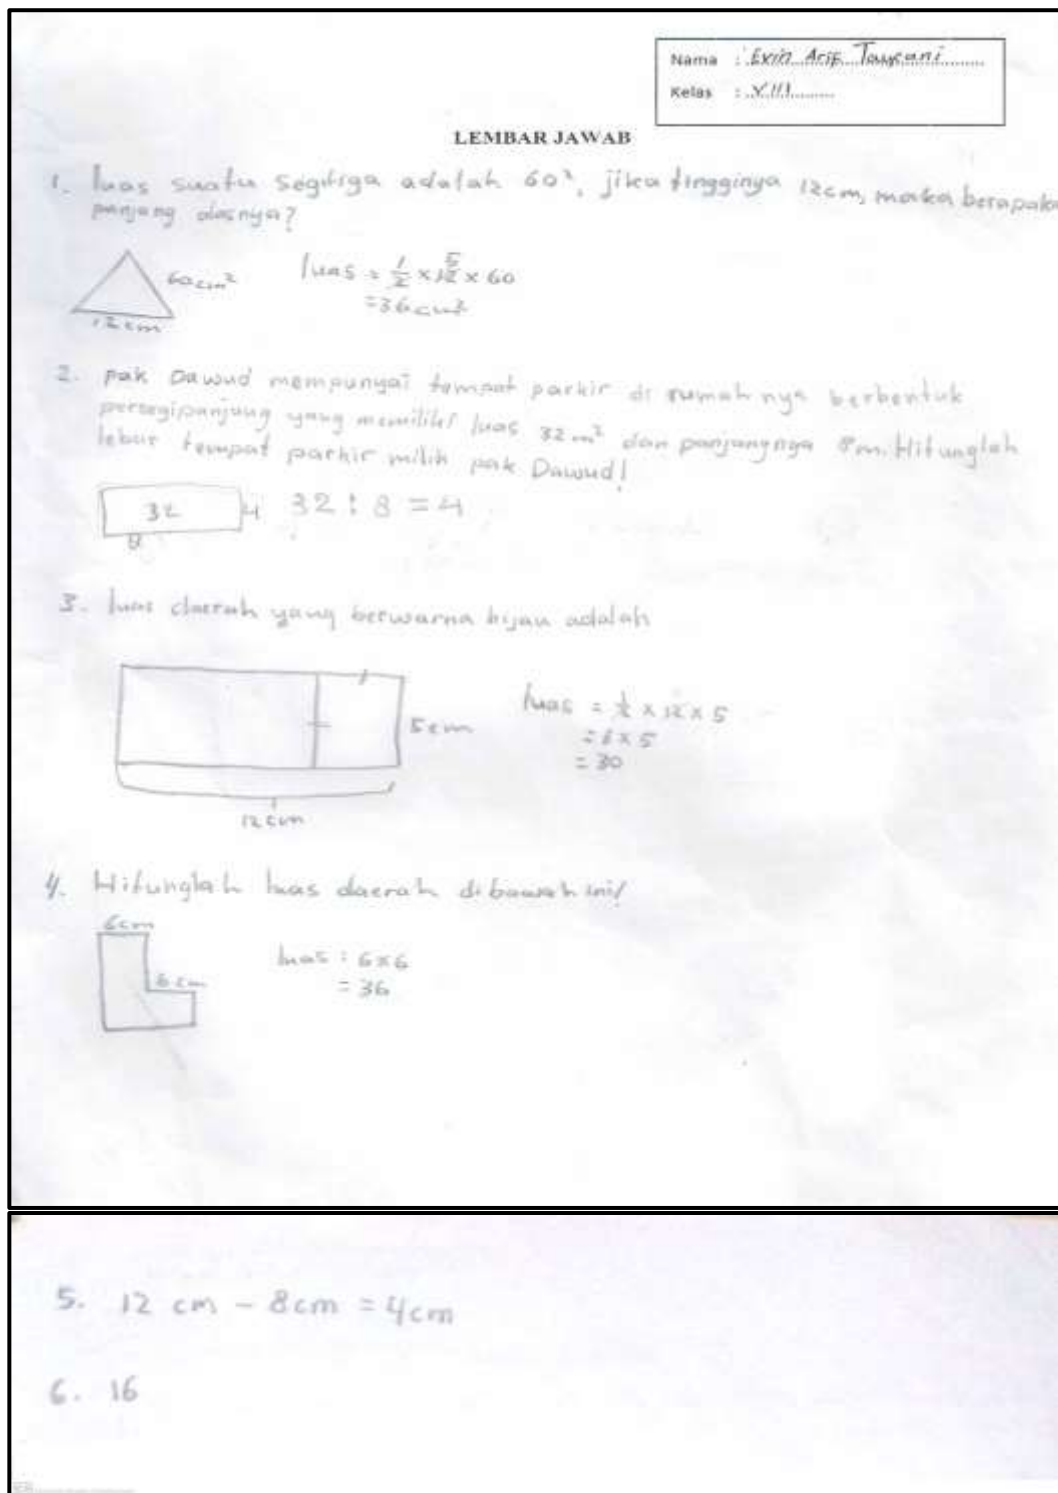 Nama : Exin Arif
Kelas : VIII
LEMBAR JAWAB
1. luas suatu segitiga adalah 60², jika tingginya 12cm, maka berapakah
panjang alasnya?
60cm²
12cm
luas = 1/2 × 12 5 × 60
= 36cm²
2. pak Dawud mempunyai tempat parkir di rumahnya berbentuk
persegipanjang yang memiliki luas 32 m² dan panjangnya 8m. Hitunglah
lebar tempat parkir milik pak Dawud!
32
4
8
32 : 8 = 4
3. luas daerah yang berwarna hijau adalah
5cm
12cm
luas = 1/2 × 12 × 5
= 6 × 5
= 30
4. Hitunglah luas daerah dibawah ini!
6cm
6cm
luas : 6×6
= 36
5. 12 cm - 8cm = 4cm
6. 16